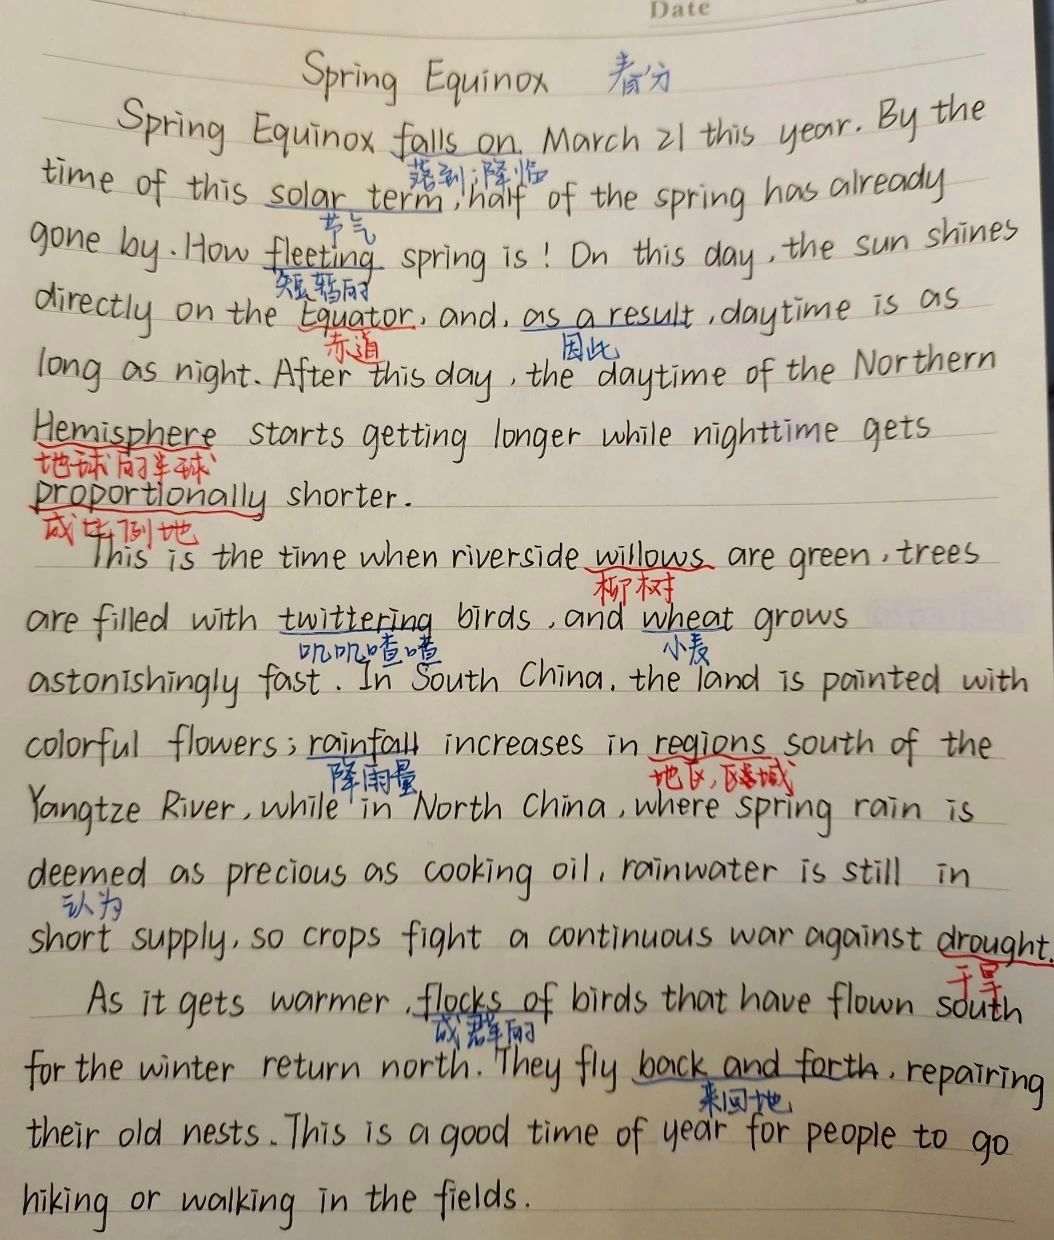 Date
Spring Equinox 春分
Spring Equinox falls on March 21 this year. By the
落到；降临
time of this solar term, half of the spring has already
节气
gone by. How fleeting spring is! On this day, the sun shines
短暂的
directly on the Equator, and, as a result, daytime is as
赤道 因此
long as night. After this day, the daytime of the Northern
Hemisphere starts getting longer while nighttime gets
地球的半球
proportionally shorter.
成比例地
This is the time when riverside willows are green, trees
柳树
are filled with twittering birds, and wheat grows
叽叽喳喳 小麦
astonishingly fast. In South China, the land is painted with
colorful flowers; rainfall increases in regions south of the
降雨量 地区,区域
Yangtze River, while in North China, where spring rain is
deemed as precious as cooking oil, rainwater is still in
认为
short supply, so crops fight a continuous war against drought.
干旱
As it gets warmer, flocks of birds that have flown south
成群的
for the winter return north. They fly back and forth, repairing
来回地
their old nests. This is a good time of year for people to go
hiking or walking in the fields.